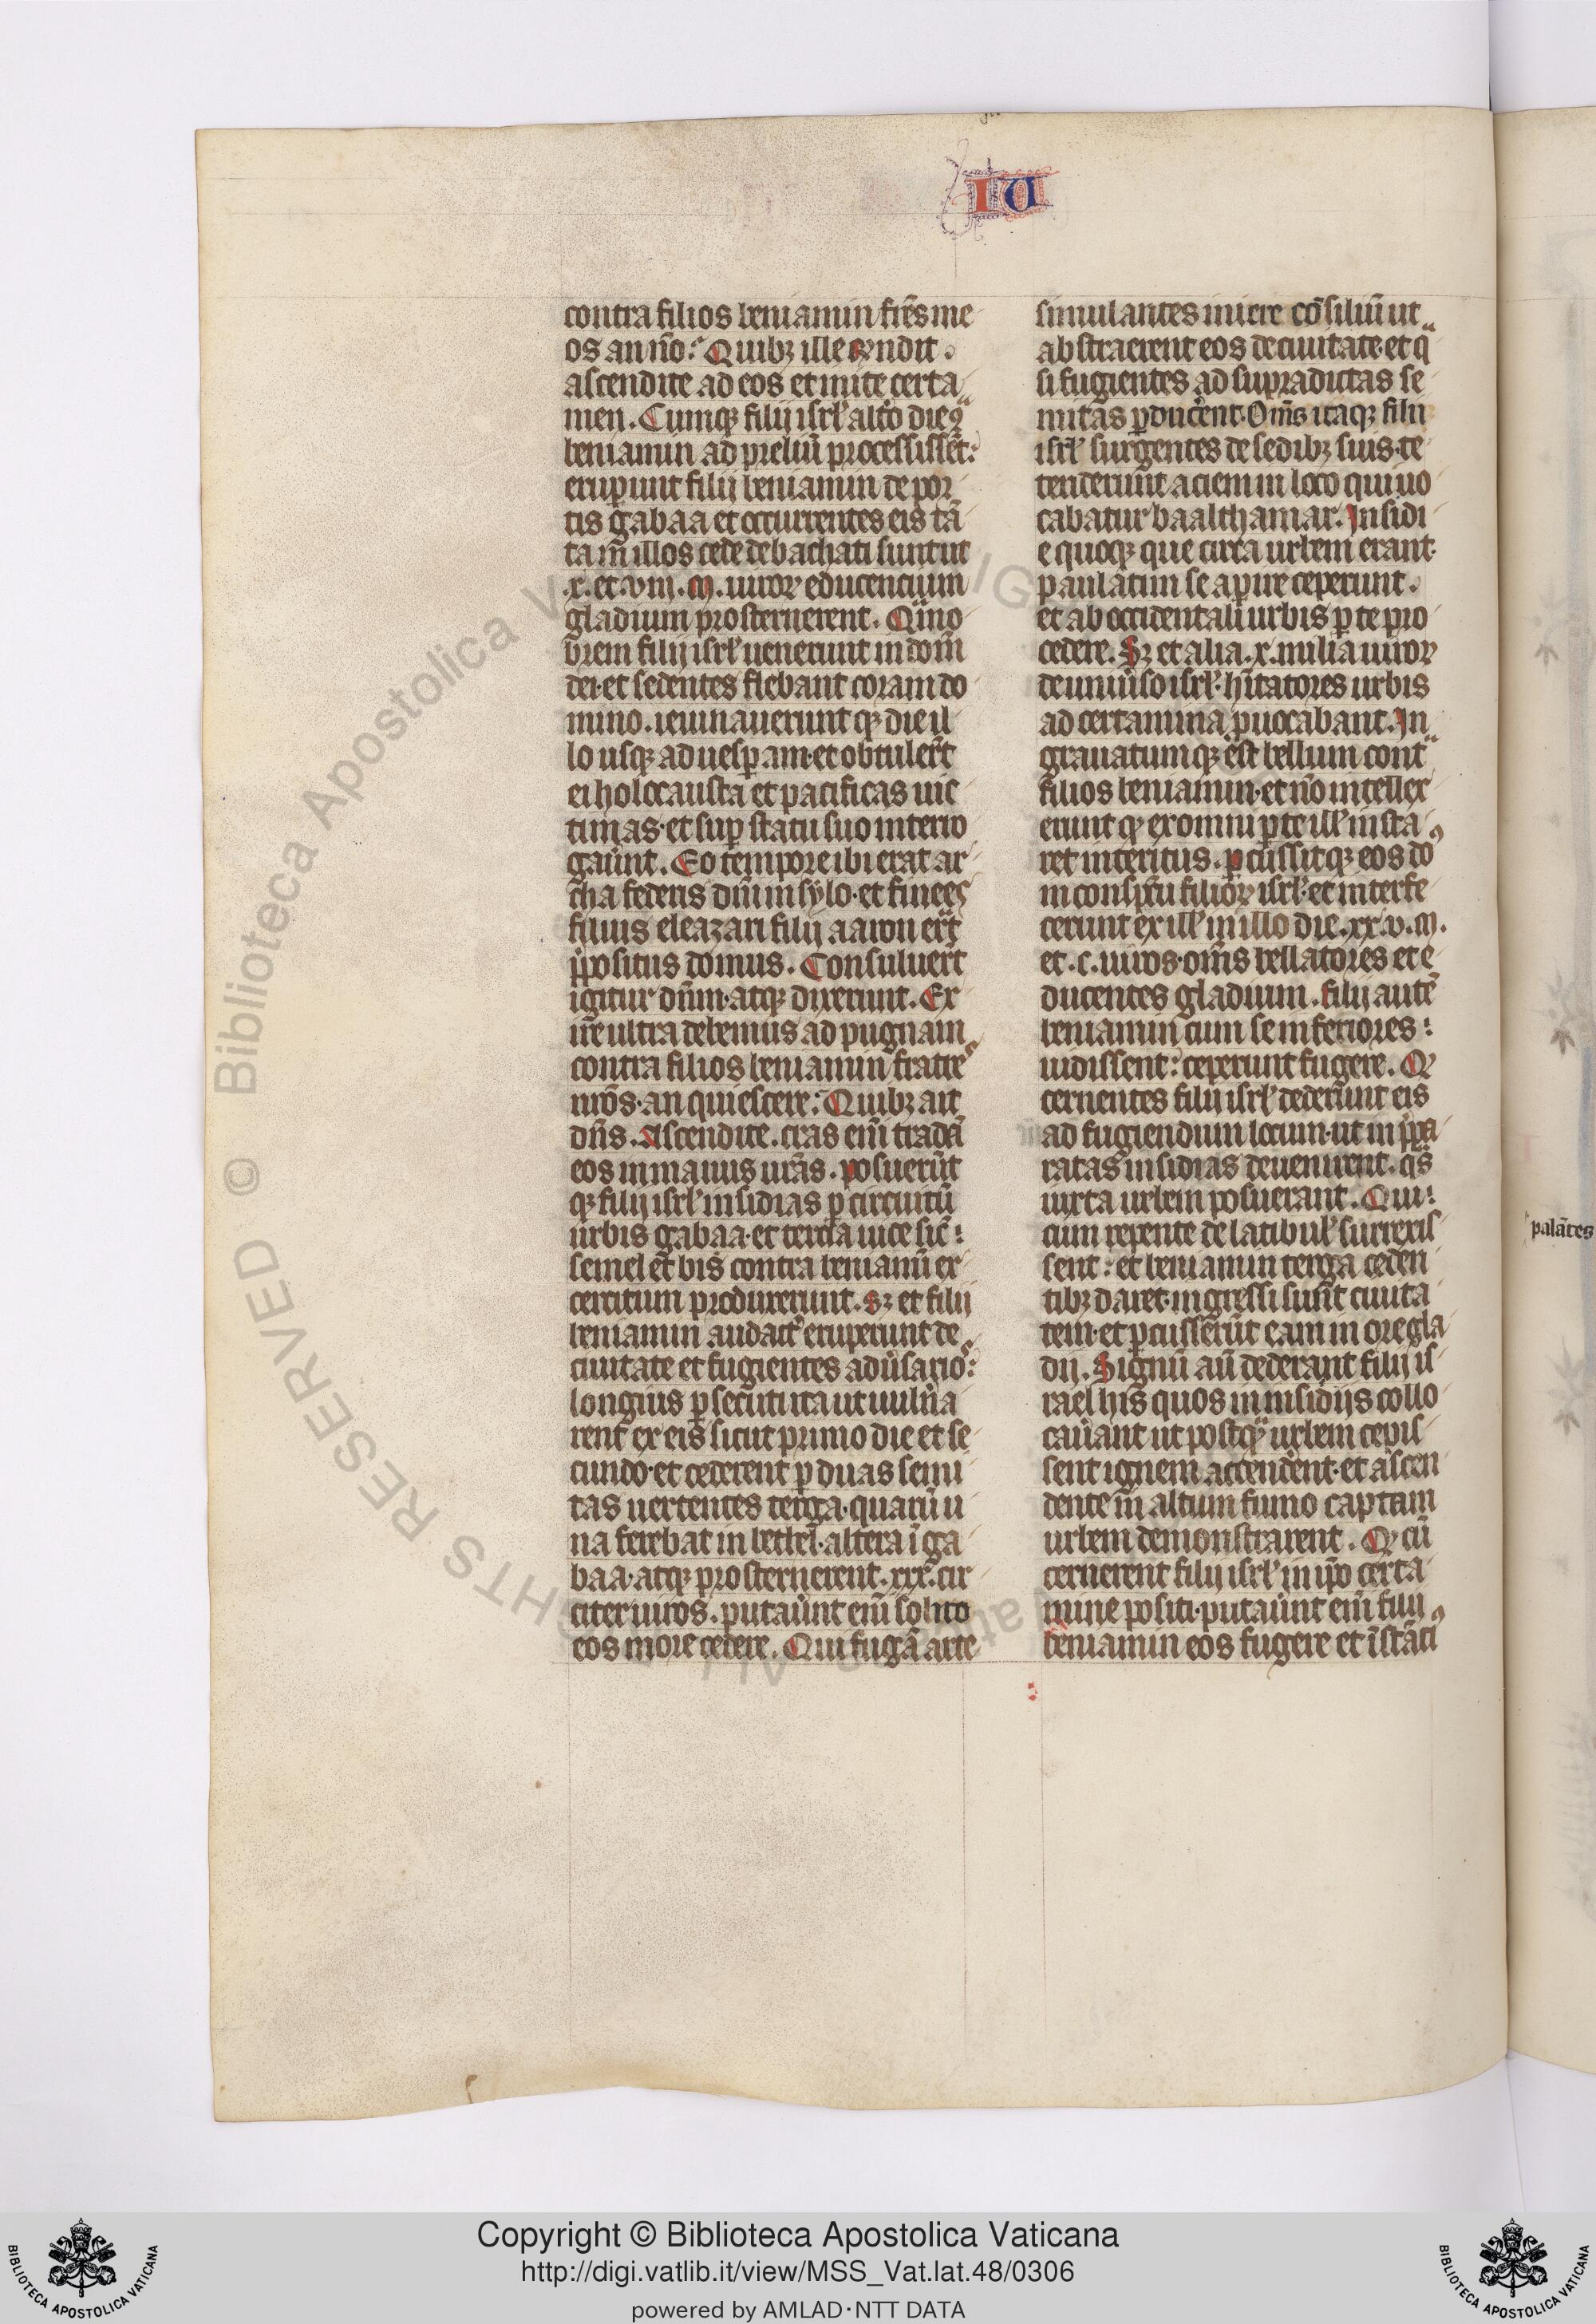 IU
contra filios beniamin frēs me
os an nō. Quibꝫ ille rn̄dit.
ascendite ad eos et inite certa
men. Cumqꝫ filij isrl̓ alt̓o die ꝯͣ
beniamin ad preliū processissēt:
eruꝑunt filij beniamin de por
tis gabaa et occurrentes eis tā
ta in illos cede debachati sunt ut
.x. et .viij. M. uiroꝝ educentium
gladium prosternerent. Qͣm̄o
brem filij isrl̓ uenerunt in domū
dei. et sedentes flebant coram do
mino. ieiunauerunt qꝫ die il
lo usqꝫ ad uesꝑam. et obtulert̄
ei holocausta et pacificas uic
timas. et suꝑ statu suo interro
gau̓unt. Eo tempore ibi erat ar
cha federis dn̄i in sylo. et finees
filius eleazari filij aaron erͣt
p̄positus domus. Consuluert̄
igitur dn̄m. atqꝫ dixerunt. Ex
ire ultra debemus ad pugnam
contra filios beniamin fratreˢ
nr̄os. an quiescere: Quibꝫ ait
dn̄s. Ascendite. cras eni̅ tradā
eos in manus ur̄as. posuerūt
qꝫ filij isrl̓ insidias ꝑ circuitū
urbis gabaa. et tercia uice sic̄:
semel et bis contra beniamī ex
ercitum produxerunt. Sꝫ et filij
beniamin audact̓ eruperunt de
ciuitate et fugientes adu̓sarioˢ:
longius ꝑsecuti ita ut uuln̓a
rent ex eis sicut primo die et se
cundo. et cederent ꝑ duas semi
tas uertentes terga. quarū u
na ferebat in bethel. altera ī ga
baa. atqꝫ prosternerent .xxx. cir
citer uiros. putau̓unt eni̅ solito
eos more cedere. Qui fugā arte
simulantes iniere cōsiliū ut
abstraerent eos de ciuitate. et qͣ
si fugientes ad supradictas se
mitas ꝑduc̓ent. Om̄s itaqꝫ filii
isrl̓ surgentes de sedibꝫ suis. te
tenderunt aciem in loco qui uo
cabatur baalthamar. Insidi
e quoqꝫ que circa urbem erant.
paulatim se aꝑire ceperunt.
et ab occidentali urbis ꝑte pro
cedere. Sꝫ et alia .x. milia uiroꝝ
de uniu̓so isrl̓. hītatores urbis
ad certamina ꝓuocabant. In
grauatumqꝫ est bellum contͣ
filios beniamin. et nō intellex
erunt qꝫ ex omni ꝑte ill̓ insta
ret interitus. ꝑcussitqꝫ eos do
in conspc̄u filioꝝ isrl̓. et interfe
cerunt ex ill̓ in illo die .xx.v. M.
et .c. uiros. om̄s bellatores et e
ducentes gladium. filij autē
beniamin cum se inferiores:
uidissent: ceperunt fugere. Qꝫ
cernentes filij isrl̓ dederunt eis
ad fugiendum locum. ut in p̄pa
ratas insidias deuenirent. qͣs
iuxta urbem posuerant. Qui:
cum repente de latibul̓ surrexis
sent: et beniamin terga ceden
tibꝫ daret. ingressi sunt ciuita
tem. et ꝑcusserūt eam in ore gla
dij. Signū aū dederant filij is
rael his quos in insidijs collo
cau̓ant ut postqͣꝫ urbem cepis
sent ignem accend̓ent. et ascen
dente in altum fumo captam
urbem demonstrarent. Qꝫ cū
cernerent filij isrl̓ in ip̄o certa
mine positi. putau̓unt eni̅ filij
beniamin eos fugere et īstāti
palātes
© Biblioteca Apostolica
RIGHTS RESERVED
Copyright © Biblioteca Apostolica Vaticana
http://digi.vatlib.it/view/MSS_Vat.lat.48/0306
powered by AMLAD·NTT DATA
BIBLIOTECA APOSTOLICA VATICANA
BIBLIOTECA APOSTOLICA VATICANA